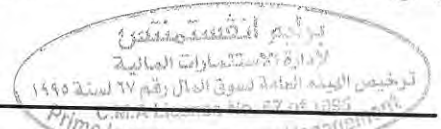 برايم انفستمنتس
لإدارة الاستثمارات المالية
ترخيص الهيئه العامة لسوق المال رقم ٦٧ لسنة ١٩٩٥
C.M.A License No. 67 of 1995
Prime